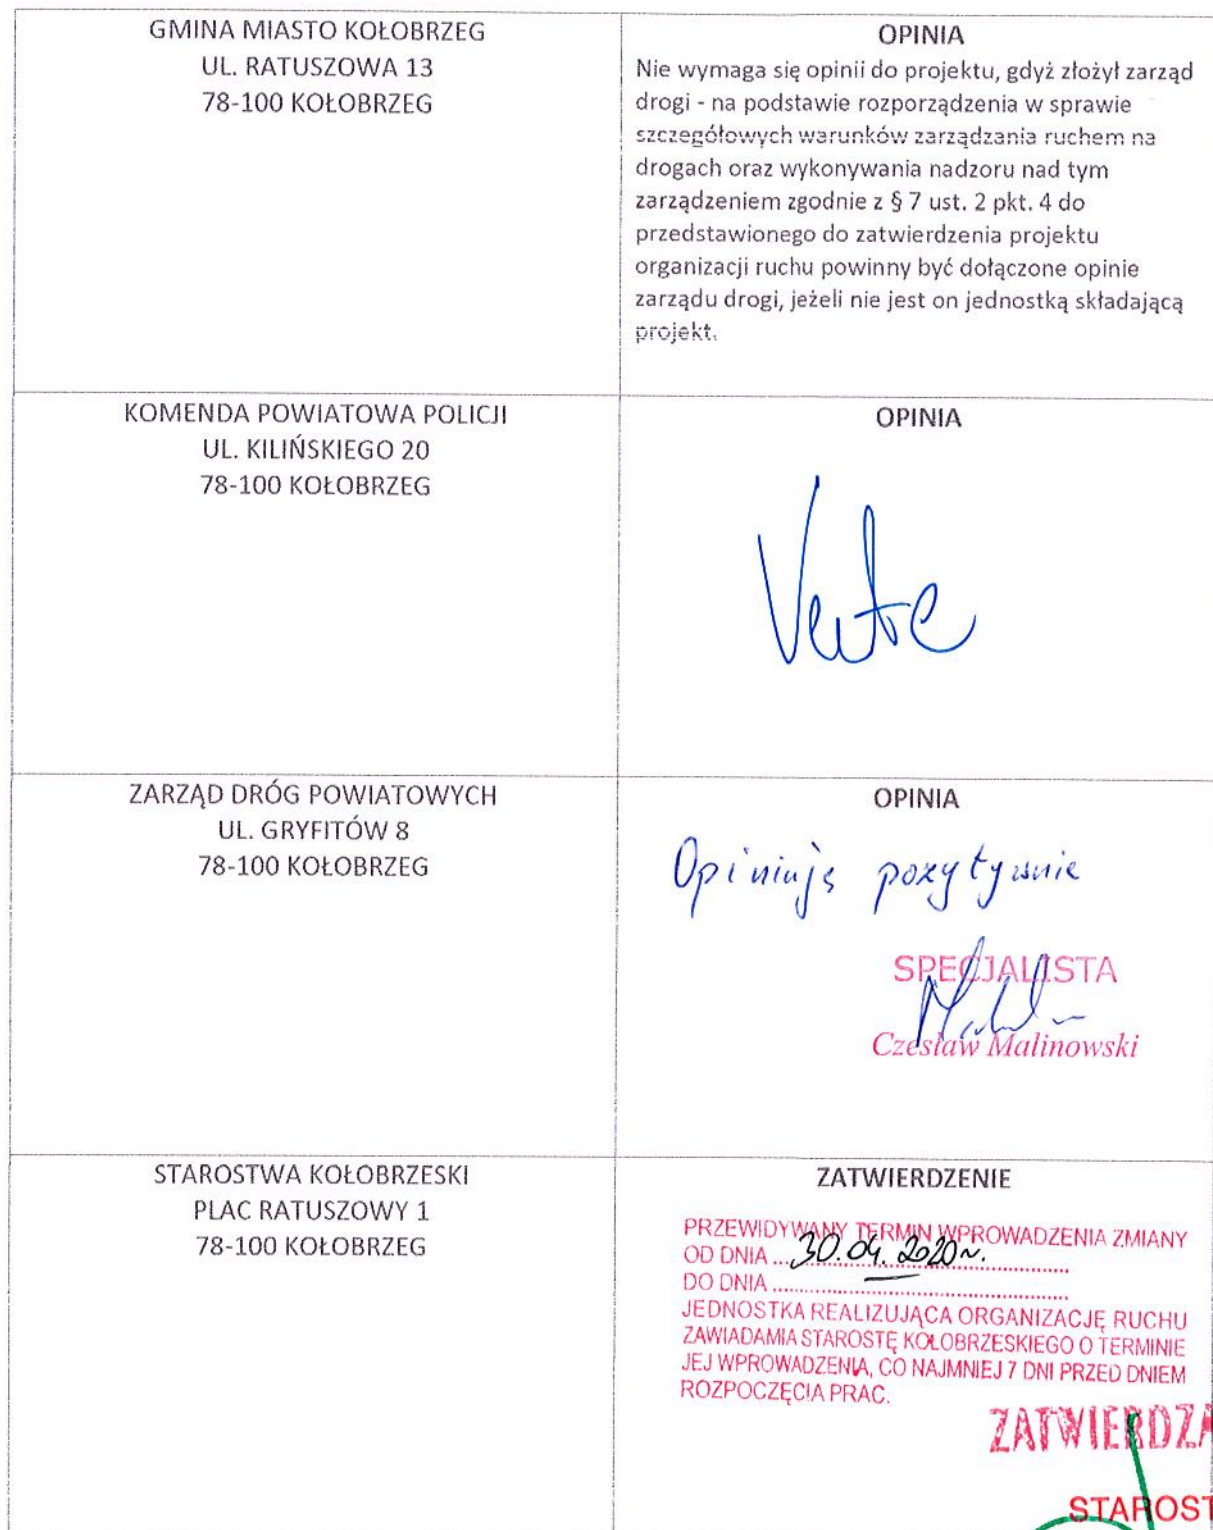 GMINA MIASTO KOŁOBRZEG
UL. RATUSZOWA 13
78-100 KOŁOBRZEG
OPINIA
Nie wymaga się opinii do projektu, gdyż złożył zarząd
drogi - na podstawie rozporządzenia w sprawie
szczegółowych warunków zarządzania ruchem na
drogach oraz wykonywania nadzoru nad tym
zarządzeniem zgodnie z § 7 ust. 2 pkt. 4 do
przedstawionego do zatwierdzenia projektu
organizacji ruchu powinny być dołączone opinie
zarządu drogi, jeżeli nie jest on jednostką składającą
projekt.
KOMENDA POWIATOWA POLICJI
UL. KILIŃSKIEGO 20
78-100 KOŁOBRZEG
OPINIA
ZARZĄD DRÓG POWIATOWYCH
UL. GRYFITÓW 8
78-100 KOŁOBRZEG
OPINIA
Opiniuję pozytywnie
SPECJALISTA
Czesław Malinowski
STAROSTWA KOŁOBRZESKI
PLAC RATUSZOWY 1
78-100 KOŁOBRZEG
ZATWIERDZENIE
PRZEWIDYWANY TERMIN WPROWADZENIA ZMIANY
OD DNIA ... 30.04.2020r.
DO DNIA ...............
JEDNOSTKA REALIZUJĄCA ORGANIZACJĘ RUCHU
ZAWIADAMIA STAROSTĘ KOŁOBRZESKIEGO O TERMINIE
JEJ WPROWADZENIA, CO NAJMNIEJ 7 DNI PRZED DNIEM
ROZPOCZĘCIA PRAC.
ZATWIERDZA
STAROST